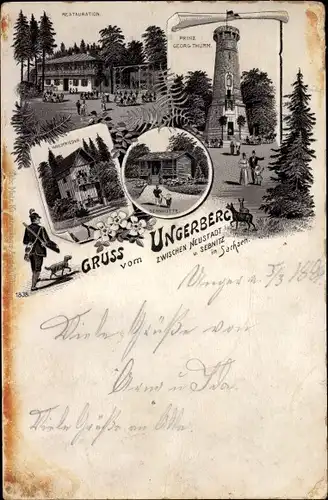 RESTAURATION.
PRINZ
GEORG-THURM.
GRUSS vom UNGERBERG
ZWISCHEN NEUSTADT
u. SEBNITZ
in Sachsen.
1838
Unger d.
Viele Grüße von
u Ida.
Viele Grüße an Alle.